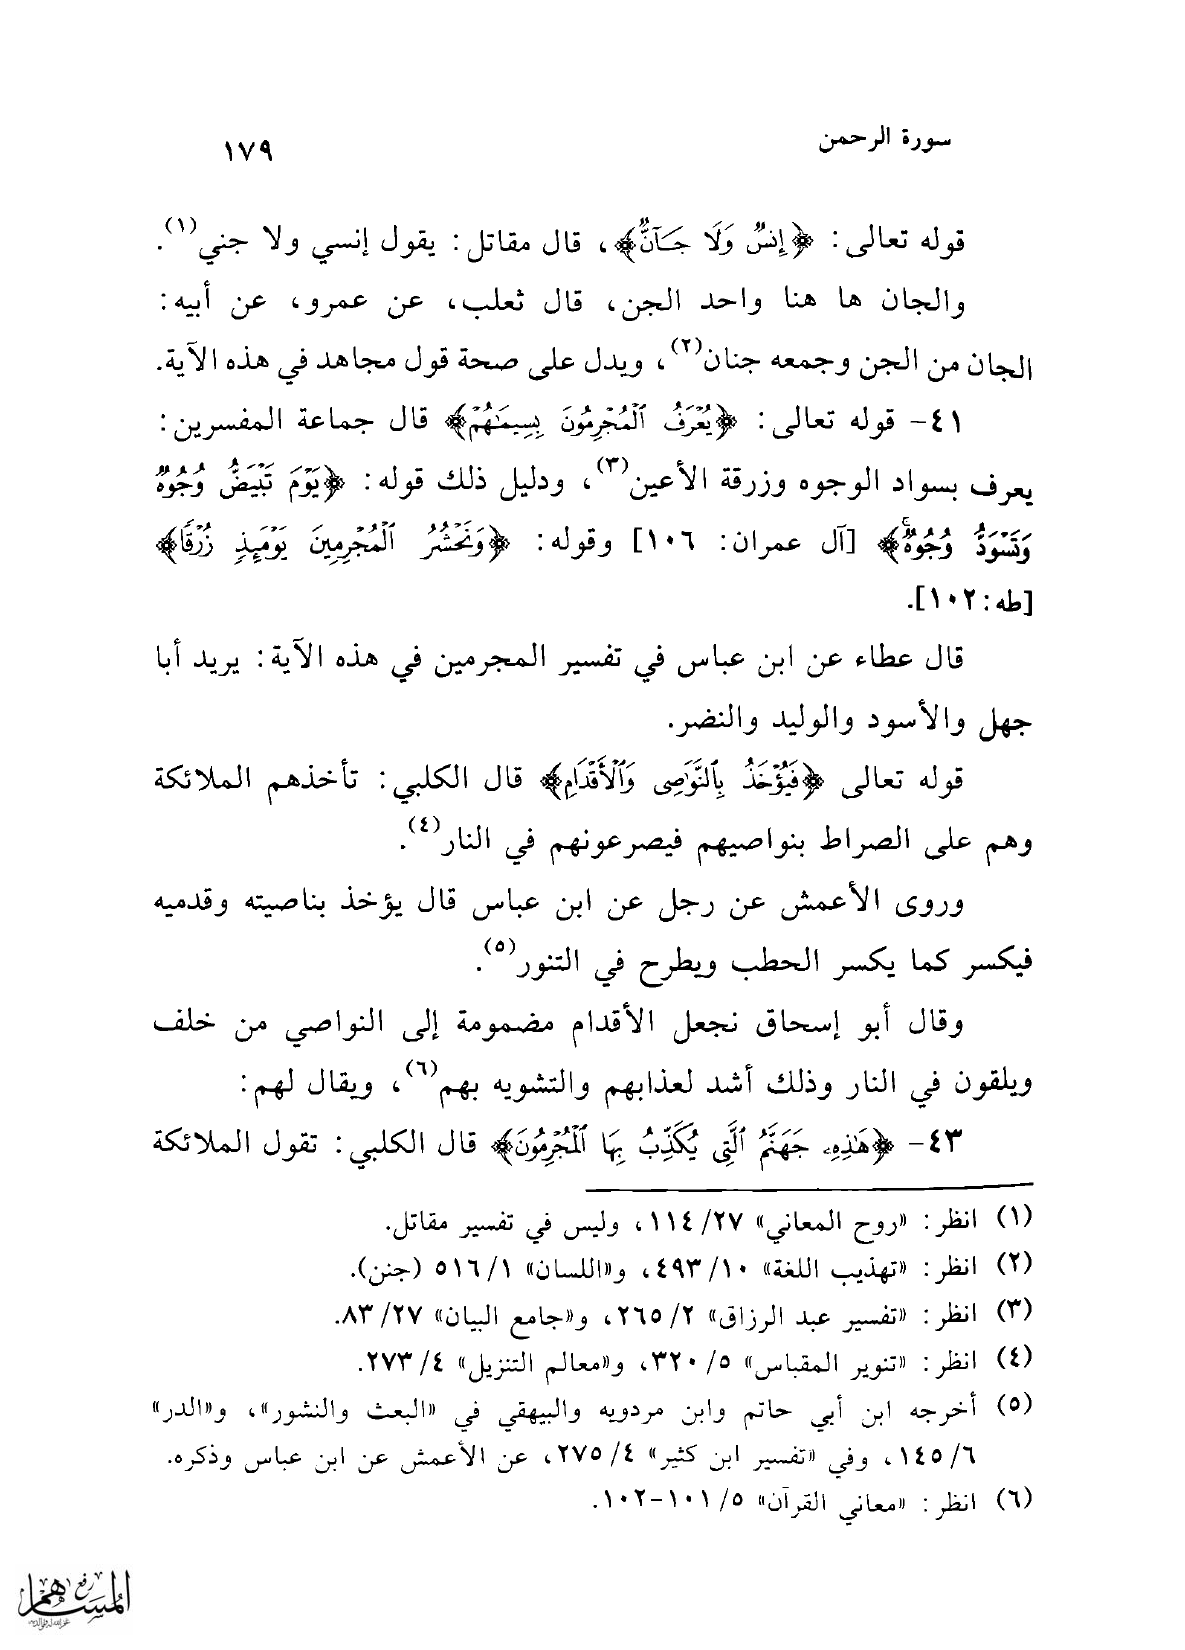 سورة الرحمن ١٧٩
قوله تعالى: ﴿إِنسٌ وَلَا جَآنٌّ﴾، قال مقاتل: يقول إنسي ولا جني(١).
والجان ها هنا واحد الجن، قال ثعلب، عن عمرو، عن أبيه:
الجان من الجن وجمعه جنان(٢)، ويدل على صحة قول مجاهد في هذه الآية.
٤١- قوله تعالى: ﴿يُعْرَفُ ٱلْمُجْرِمُونَ بِسِيمَٰهُمْ﴾ قال جماعة المفسرين:
يعرف بسواد الوجوه وزرقة الأعين(٣)، ودليل ذلك قوله: ﴿يَوْمَ تَبْيَضُّ وُجُوهٌ
وَتَسْوَدُّ وُجُوهٌۚ﴾ [آل عمران: ١٠٦] وقوله: ﴿وَنَحْشُرُ ٱلْمُجْرِمِينَ يَوْمَئِذٍ زُرْقًا﴾
[طه: ١٠٢].
قال عطاء عن ابن عباس في تفسير المجرمين في هذه الآية: يريد أبا
جهل والأسود والوليد والنضر.
قوله تعالى ﴿فَيُؤْخَذُ بِٱلنَّوَٰصِى وَٱلْأَقْدَامِ﴾ قال الكلبي: تأخذهم الملائكة
وهم على الصراط بنواصيهم فيصرعونهم في النار(٤).
وروى الأعمش عن رجل عن ابن عباس قال يؤخذ بناصيته وقدميه
فيكسر كما يكسر الحطب ويطرح في التنور(٥).
وقال أبو إسحاق نجعل الأقدام مضمومة إلى النواصي من خلف
ويلقون في النار وذلك أشد لعذابهم والتشويه بهم(٦)، ويقال لهم:
٤٣- ﴿هَٰذِهِۦ جَهَنَّمُ ٱلَّتِى يُكَذِّبُ بِهَا ٱلْمُجْرِمُونَ﴾ قال الكلبي: تقول الملائكة
(١) انظر: «روح المعاني» ٢٧/ ١١٤، وليس في تفسير مقاتل.
(٢) انظر: «تهذيب اللغة» ١٠/ ٤٩٣، و«اللسان» ١/ ٥١٦ (جنن).
(٣) انظر: «تفسير عبد الرزاق» ٢/ ٢٦٥، و«جامع البيان» ٢٧/ ٨٣.
(٤) انظر: «تنوير المقباس» ٥/ ٣٢٠، و«معالم التنزيل» ٤/ ٢٧٣.
(٥) أخرجه ابن أبي حاتم وابن مردويه والبيهقي في «البعث والنشور»، و«الدر»
٦/ ١٤٥، وفي «تفسير ابن كثير» ٤/ ٢٧٥، عن الأعمش عن ابن عباس وذكره.
(٦) انظر: «معاني القرآن» ٥/ ١٠١-١٠٢.
رفع
المساهم